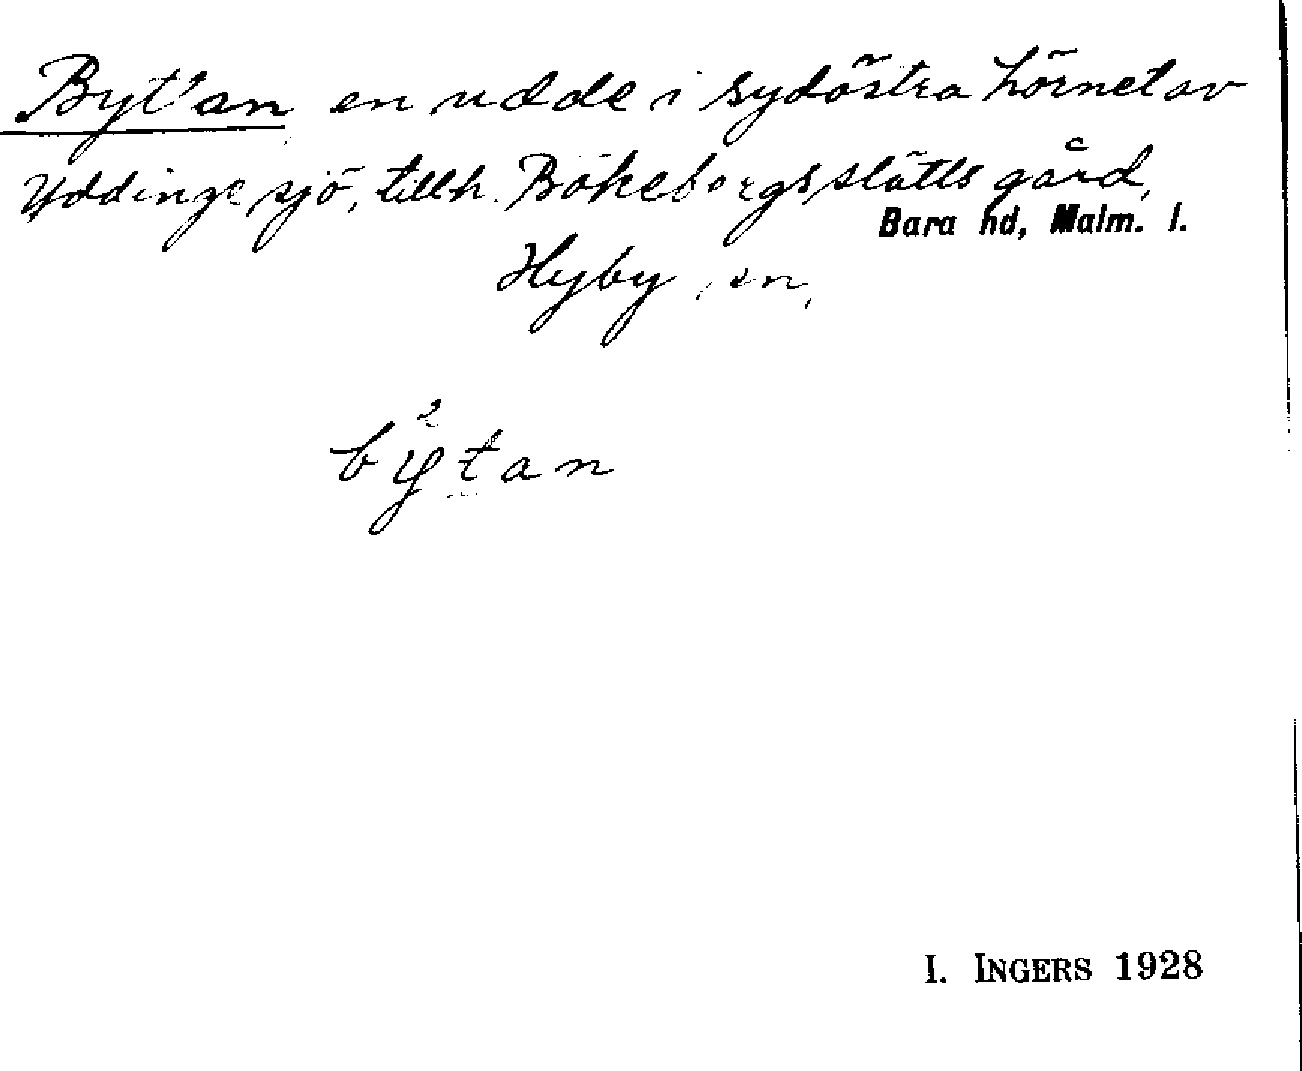 Byt'an en udde i sydöstra hörnet av
Yddinge sjö, tillh. Bökeborgs slätts gård,
Bara hd, Malm. l.
Hyby sn,
by²tan
I. INGERS 1928